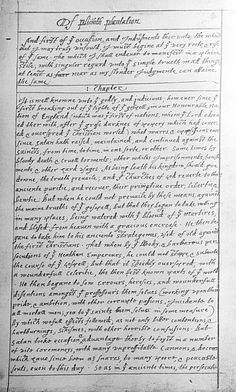 Of plimoth plantation
And first of yᵉ occasion, and Indusments ther unto; the which
that I may truly unfould, I must begine at yᵉ very roote & rise
of yᵉ same. The which I shall endevor to manefest in a plaine
stile; with singuler regard unto yᵉ simple trueth in all things,
at least as near as my slender Judgmente can attaine
the same.
1 Chapter
It is well knowne unto yᵉ godly, and judicious, how ever since yᵉ
first breaking out of yᵉ lighte of yᵉ gospell, in our Honourable Na-
tion of England (which was yᵉ first of nations, whom yᵉ Lord adorn-
ed ther with, affter yᵗ grosse darknes of popery which had cover-
ed & overspred yᵉ christian worled) what warrs & oppossissions ever
since satan hath raised, maintained, and continued against the
saincts, from time, to time, in one sorte, or other. Some times by
bloody death & cruell torments; other whiles Imprisonments, banish-
ments, & other hard usages; As being loath his kingdom should goe
downe, the trueth prevaile; and yᵉ Churches of God reverte to their
anciente puritie; and recover, their primative order, libertie, &
bewtie. But when he could not prevaile by these means, against
the maine trueths of yᵉ gospell; but that they began to take rootting
in many places; being watered with yᵉ blooud of yᵉ martires,
and blessed from heaven with a gracious encrease. He then be-
gane to take him to his anciente strategemes, used of old against
the first christians. That when by yᵉ bloody, & barbarous per-
secutions of yᵉ Heathen Emperours, he could not stoppe, & subuerte
the course of yᵉ Gospell; but that it speedily overspred, with
a wounderfull celeritie, the then best known parts of yᵉ world.
He then begane to sow errours, heresies, and wounderfull
dissentions amongst yᵉ professours them selves (working upon their
pride, & ambition, with other corrupte passions, Incidente to
all mortall men; yea to yᵉ saints them selves in some measure)
By which wofull effects followed; as not only bitter contentions, &
hartburnings, schismes, with other horrible confusions. But
satan tooke occasion & advantage therby to foyst in a number
of vile ceremonys, with many unproffitable Cannons, & decrees
which have since been as snares, to many poore, & peaceable
souls, even to this day. So as in yᵉ anciente times, the persecutio